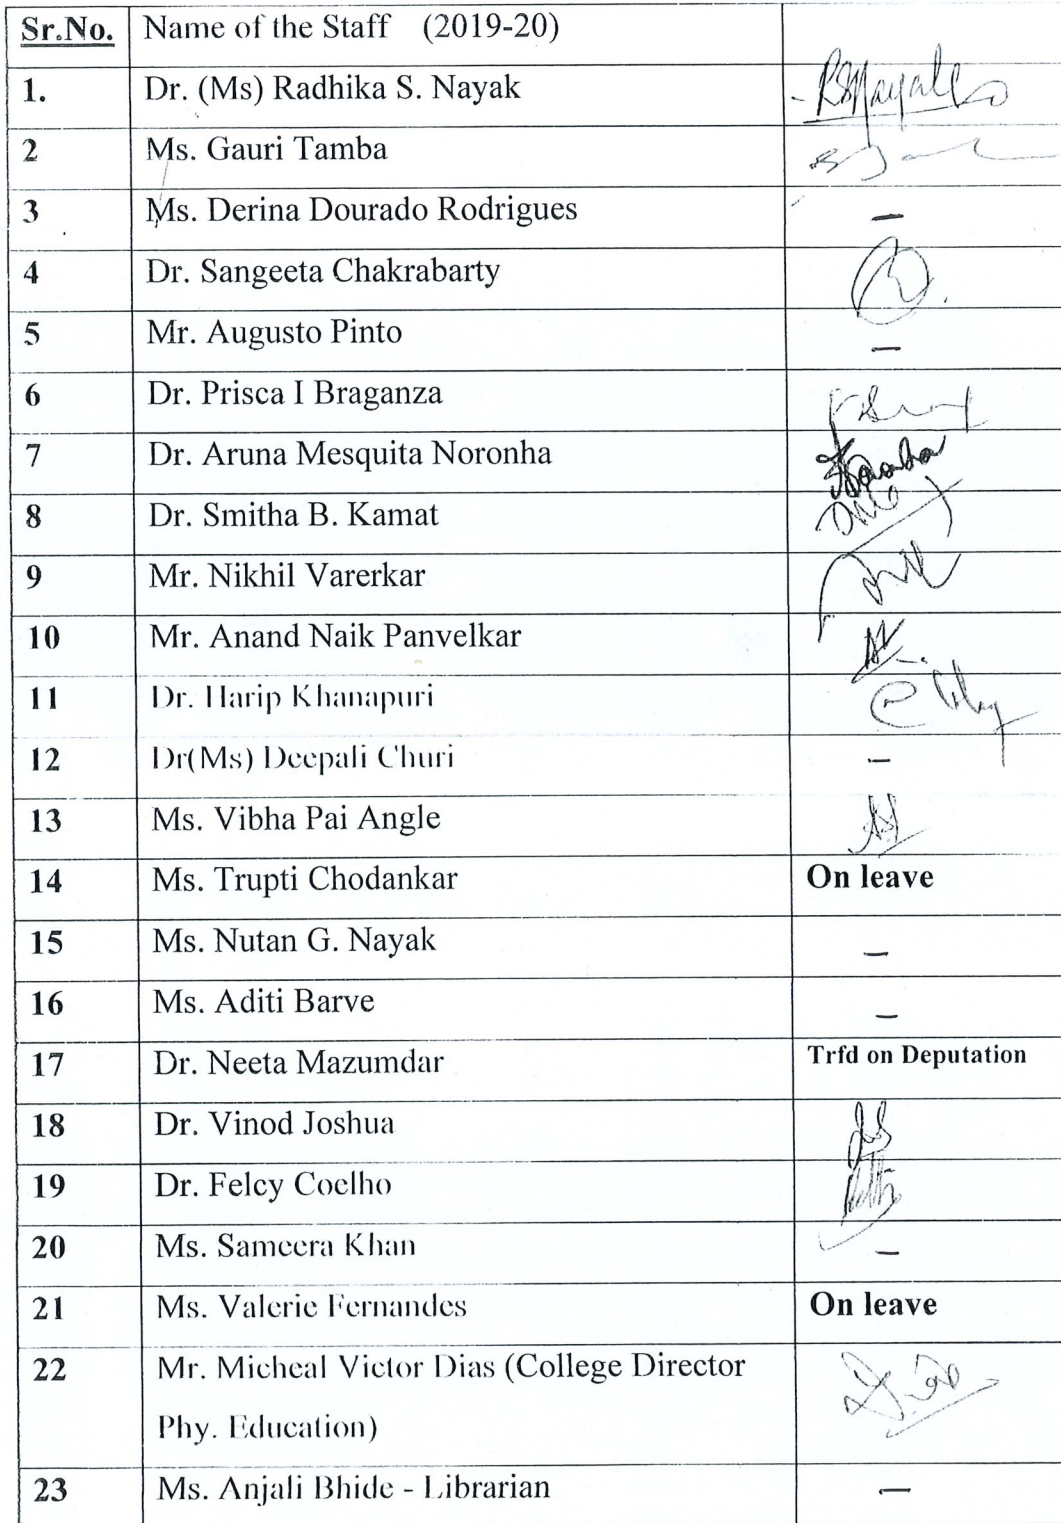 Sr.No. Name of the Staff (2019-20)
1. Dr. (Ms) Radhika S. Nayak RSNayak
2 Ms. Gauri Tamba
3 Ms. Derina Dourado Rodrigues –
4 Dr. Sangeeta Chakrabarty
5 Mr. Augusto Pinto –
6 Dr. Prisca I Braganza
7 Dr. Aruna Mesquita Noronha Noronha
8 Dr. Smitha B. Kamat
9 Mr. Nikhil Varerkar
10 Mr. Anand Naik Panvelkar
11 Dr. Harip Khanapuri
12 Dr(Ms) Deepali Churi –
13 Ms. Vibha Pai Angle
14 Ms. Trupti Chodankar On leave
15 Ms. Nutan G. Nayak –
16 Ms. Aditi Barve –
17 Dr. Neeta Mazumdar Trfd on Deputation
18 Dr. Vinod Joshua
19 Dr. Felcy Coelho
20 Ms. Sameera Khan –
21 Ms. Valerie Fernandes On leave
22 Mr. Micheal Victor Dias (College Director
Phy. Education)
23 Ms. Anjali Bhide - Librarian –